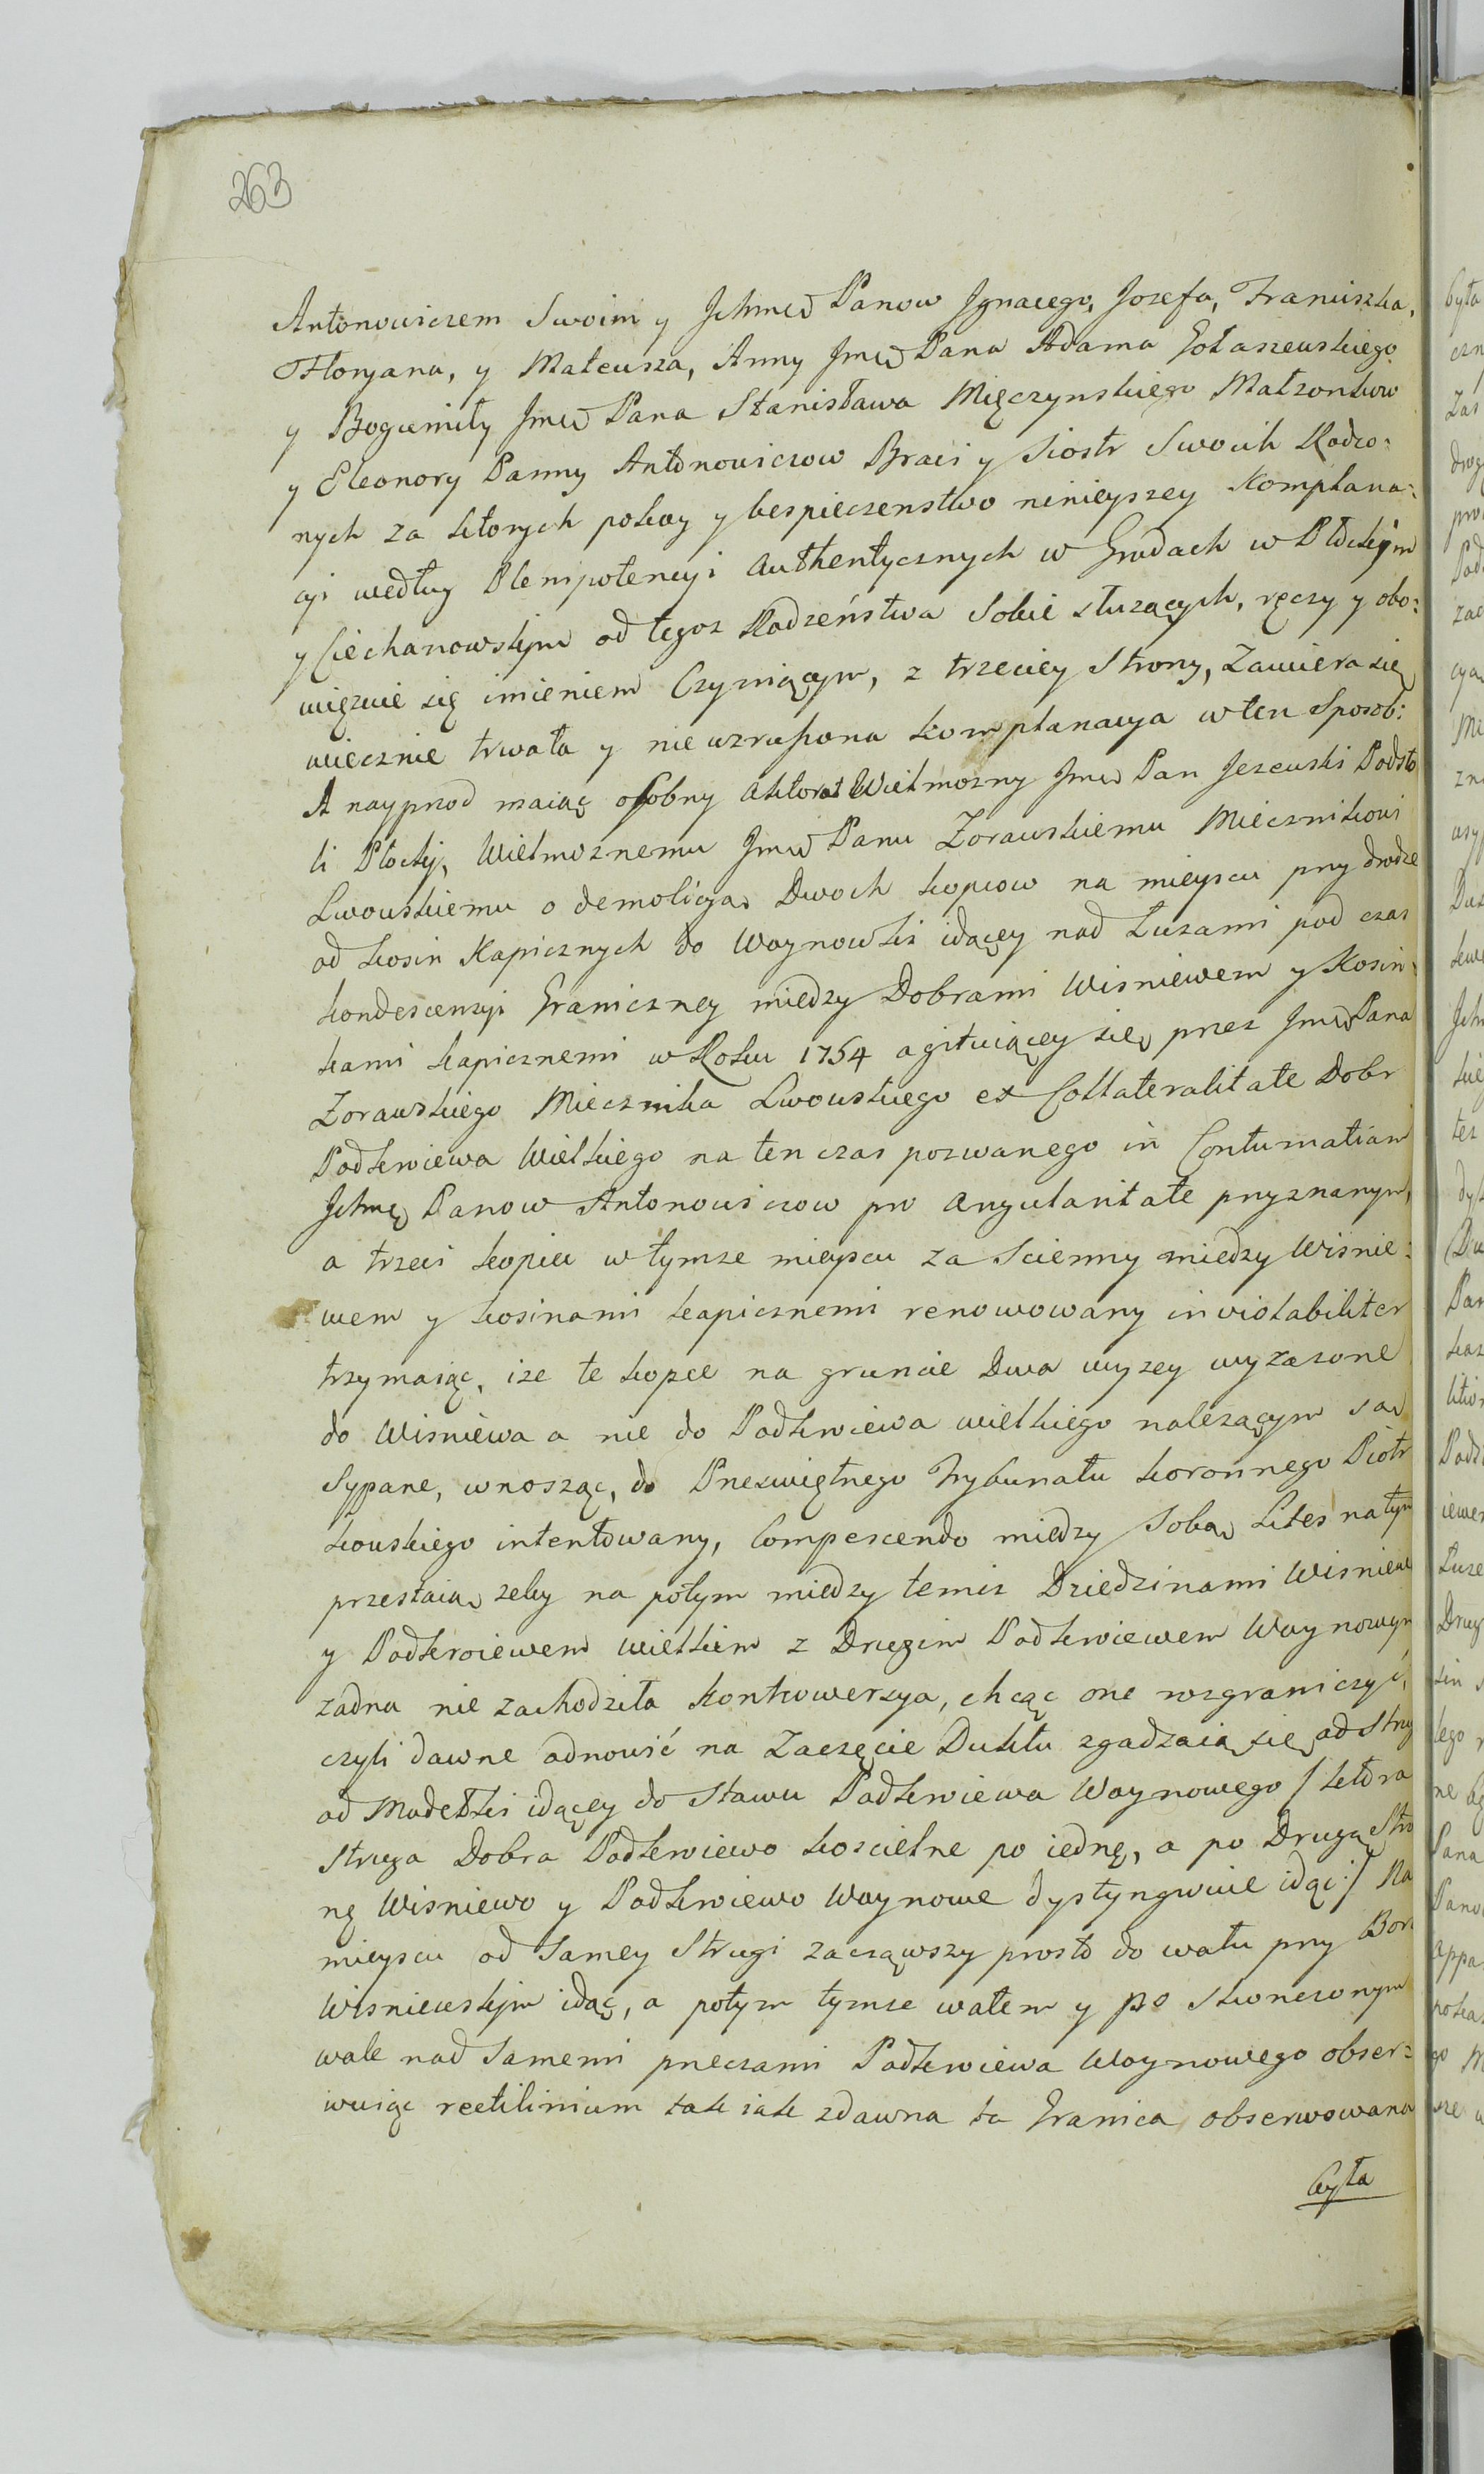 263
Antonowiczem Swoim y Jchmciów Panow Jgnacego, Jozefa, Franciszka,
Floryana, y Mateusza, Anny Jmci Pana Adama Gołaszewskiego
y Bogumiły Jmci Pana Stanisława Mięczynskiego Małzonkow
y Eleonory Panny Antonowiczow Braci y Siostr Swoich Rodzo:
nych za ktorych pokoy y bespieczenstwo ninieyszey Komplana:
cyi według Plenipotencyi Authentycznych w Grodach w Płockiym
y Ciechanowskiym od tegoz Rodzeństwa Sobie słuzących, ręczy y obo:
więzuie się imieniem Czyniącym, z trzeciey Strony, Zawiera się
wiecznie trwała y nie wzruszona komplanacya w ten Sposob:
A nayprzod maiąc osobny aktorat Wielmozny Jmci Pan Jezewski Podsto
li Płocki, Wielmoznemu Jmci Panu Zorawskiemu Miecznikowi
Lwowskiemu o demolicyą Dwoch kopcow na mieyscu przy drodze
od Kosin Kapicznych do Woynowki idącey nad Łuzami pod czas
kondescensyi Graniczney między Dobrami Wisniewem y Kosin
kami kapicznemi w Roku 1754 agituiącey się przez Jmci Pana
Zorawskiego Miecznika Lwowskiego ex Collateralitate Dobr
Podkrwiewa Wielkiego na ten czas pozwanego in Contumatiam
Jchmę Panow Antonowiczow pro angularitate przyznanym,
a trzeci kopiec w tymze mieyscu za Scienny między Wisnie:
wem y kosinami kapicznemi renowowany inviolabiliter
trzymaiąc, ize te kopce na gruncie Dwa wyzey wyrazone
do Wisniewa a nie do Podkrwiewa wielkiego nalezącym są
Sypane, wnosząc, do Przeswiętnego Trybunału koronnego Piotr
kowskiego intentowany, Compescendo między Sobą Lites na tym
przestaią zeby na potym między temiz Dziedzinami Wisniew
y Podkrwiewem wielkim z Drugim Podkrwiewem Woynowym
zadna nie zachodziła kontrowersya, chcąc one rozgraniczyć,
czyli dawne odnowić na Zaczęcie Duktu zgadzaią się od Strug
od Modełki idącey do Stawu Podkrwiewa Woynowego /: ktora
Struga Dobra Podkrwiewo koscielne po iednę, a po Drugą Stro
nę Wisniewo y Podkrwiewo Woynowe dystyngwuie idąc :/ Na
mieyscu od Samey Strugi zacząwszy prosto do wału przy Bor
Wisniewskiym idąc, a potym tymze wałem y po Skonczonym
wale nad Samemi przeczami Podkrwiewa Woynowego obser:
wuiąc rectilinium tak iak zdawna ta Granica obserwowana
była